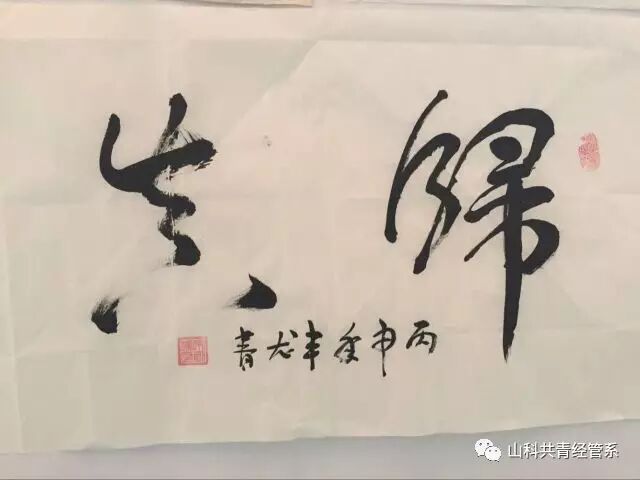 歸真
丙申
青
山科共青经管系